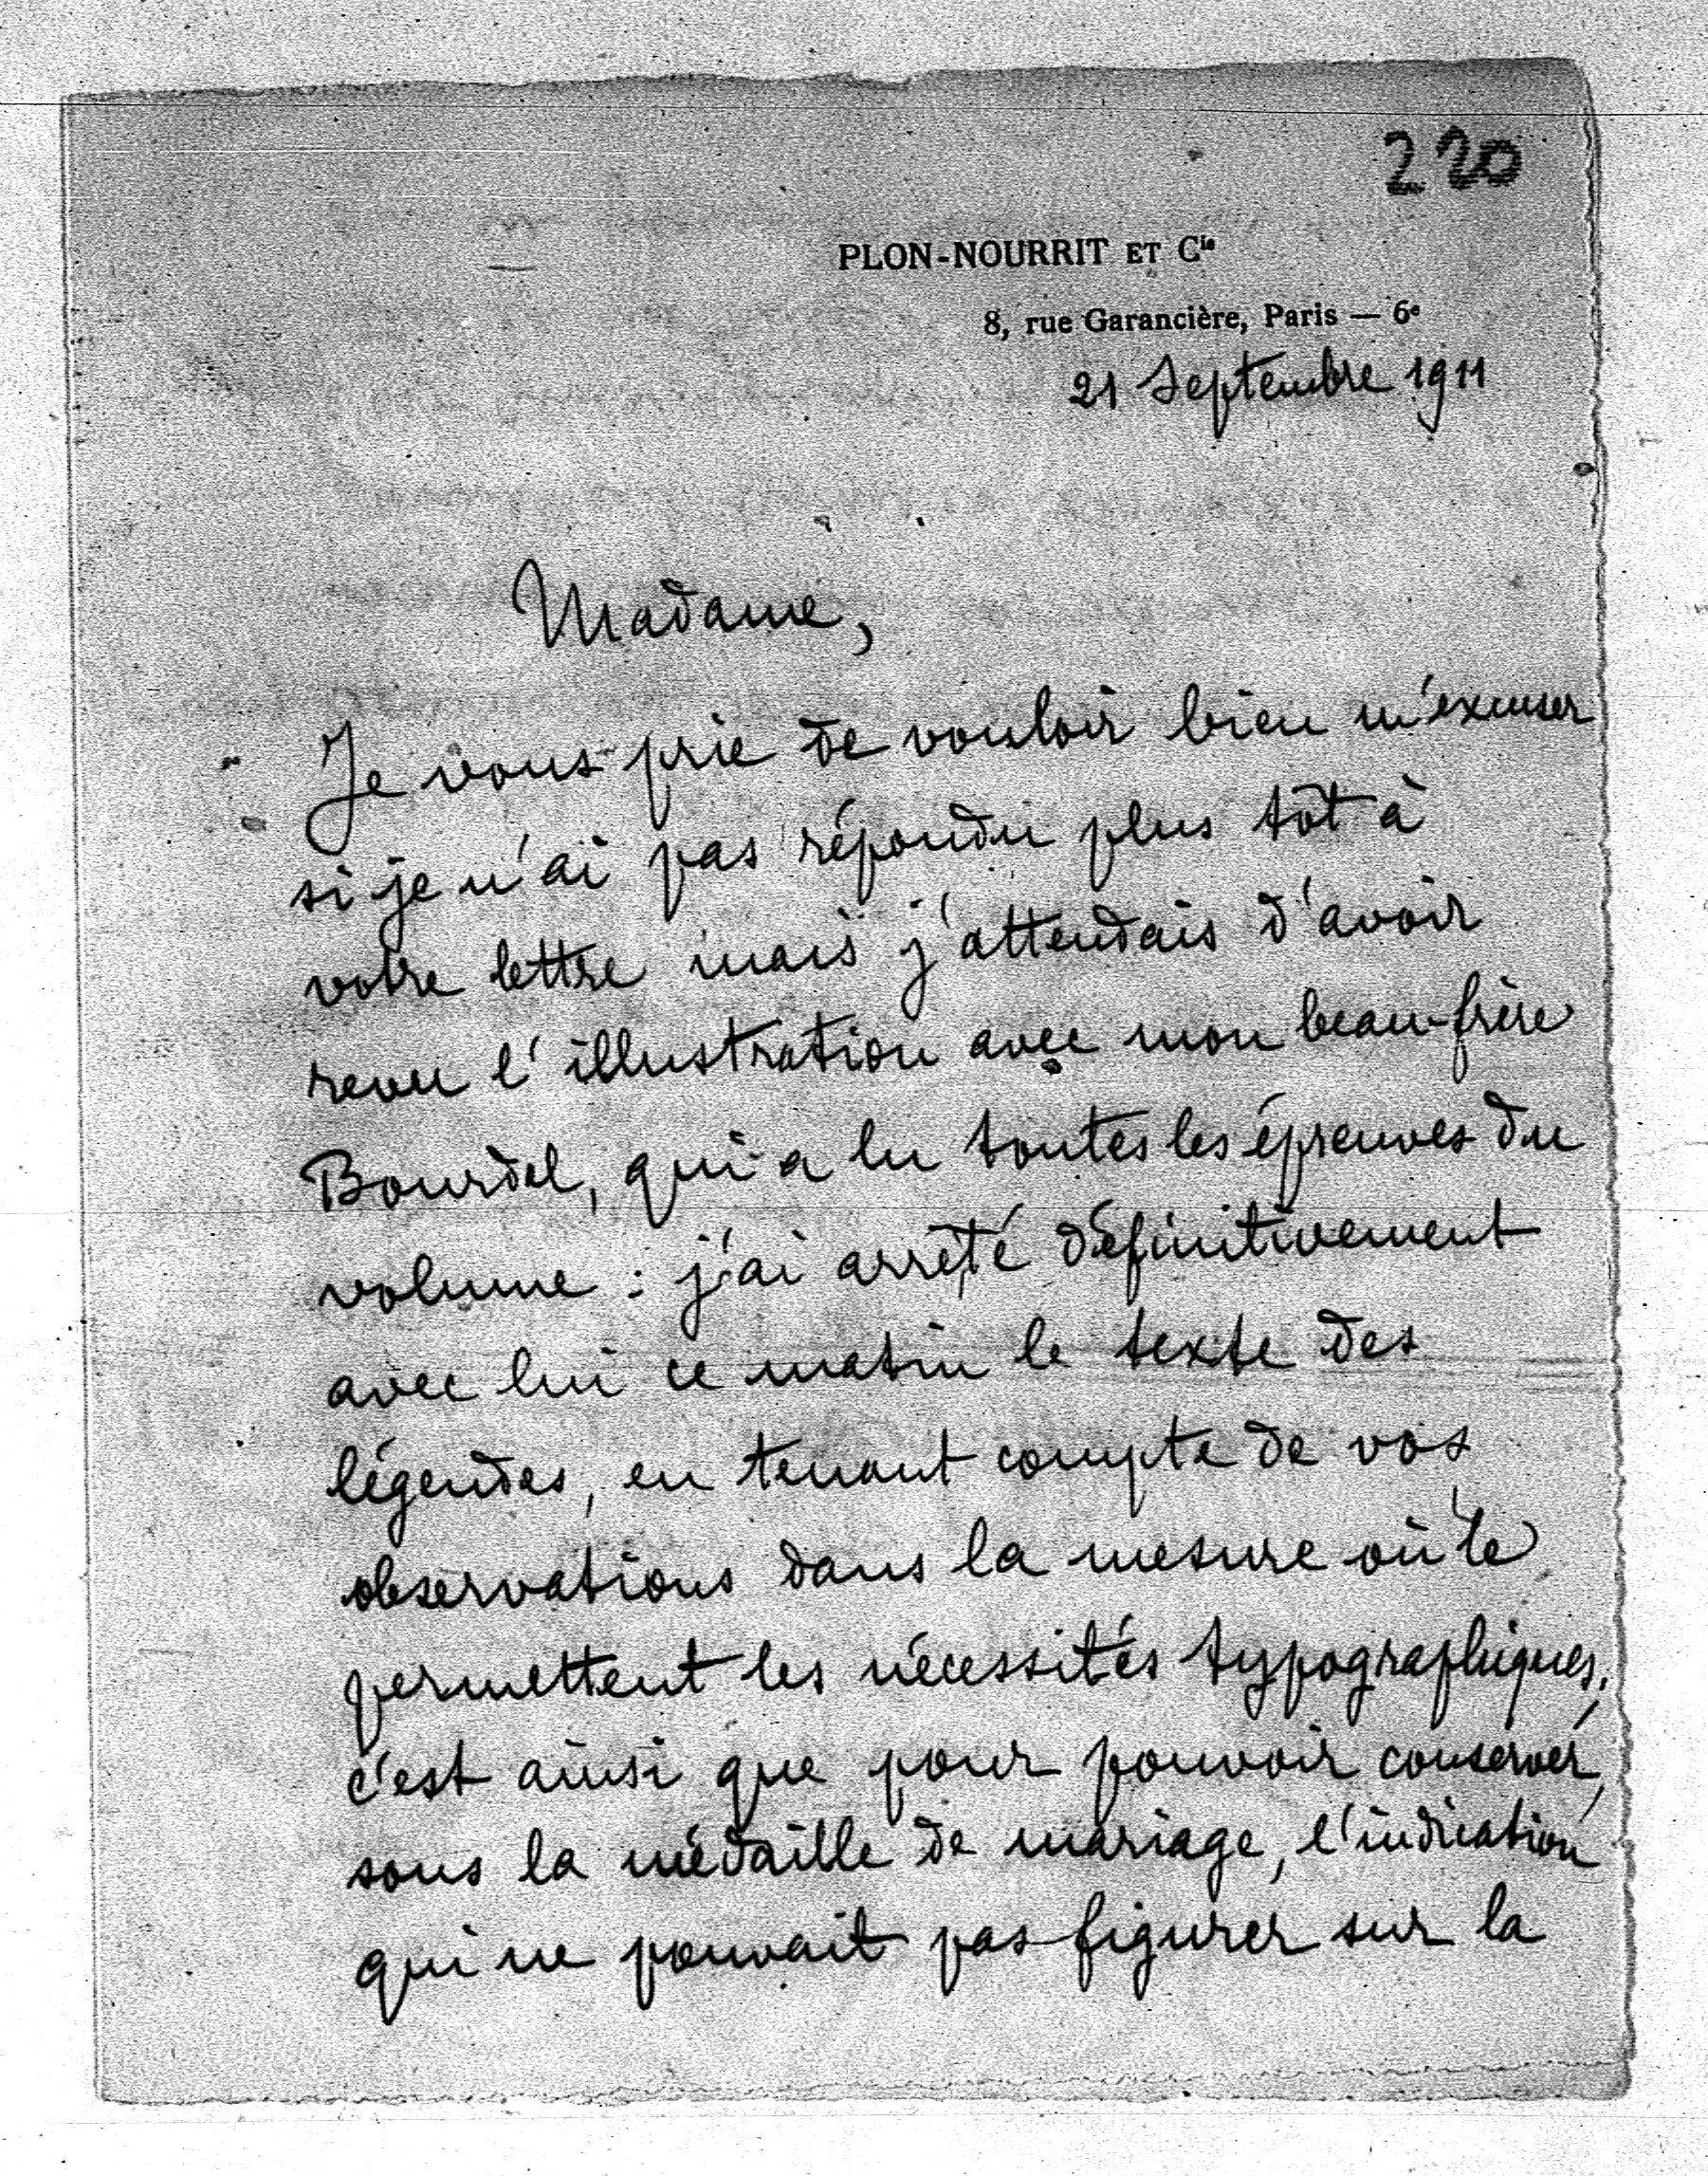 220
PLON-NOURRIT ET Cie
8, rue Garancière, Paris — 6e
21 Septembre 1911
Madame,
Je vous prie de vouloir bien m'excuser
si je n'ai pas répondu plus tôt à
votre lettre mais j'attendais d'avoir
revu l'illustration avec mon beau-frère
Bourdel, qui a lu toutes les épreuves du
volume : j'ai arrêté définitivement
avec lui ce matin le texte des
légendes, en tenant compte de vos
observations dans la mesure où le
permettent les nécessités typographiques;
c'est ainsi que pour pouvoir conserver,
sous la médaille de mariage, l'indication
qui ne pouvait pas figurer sur la